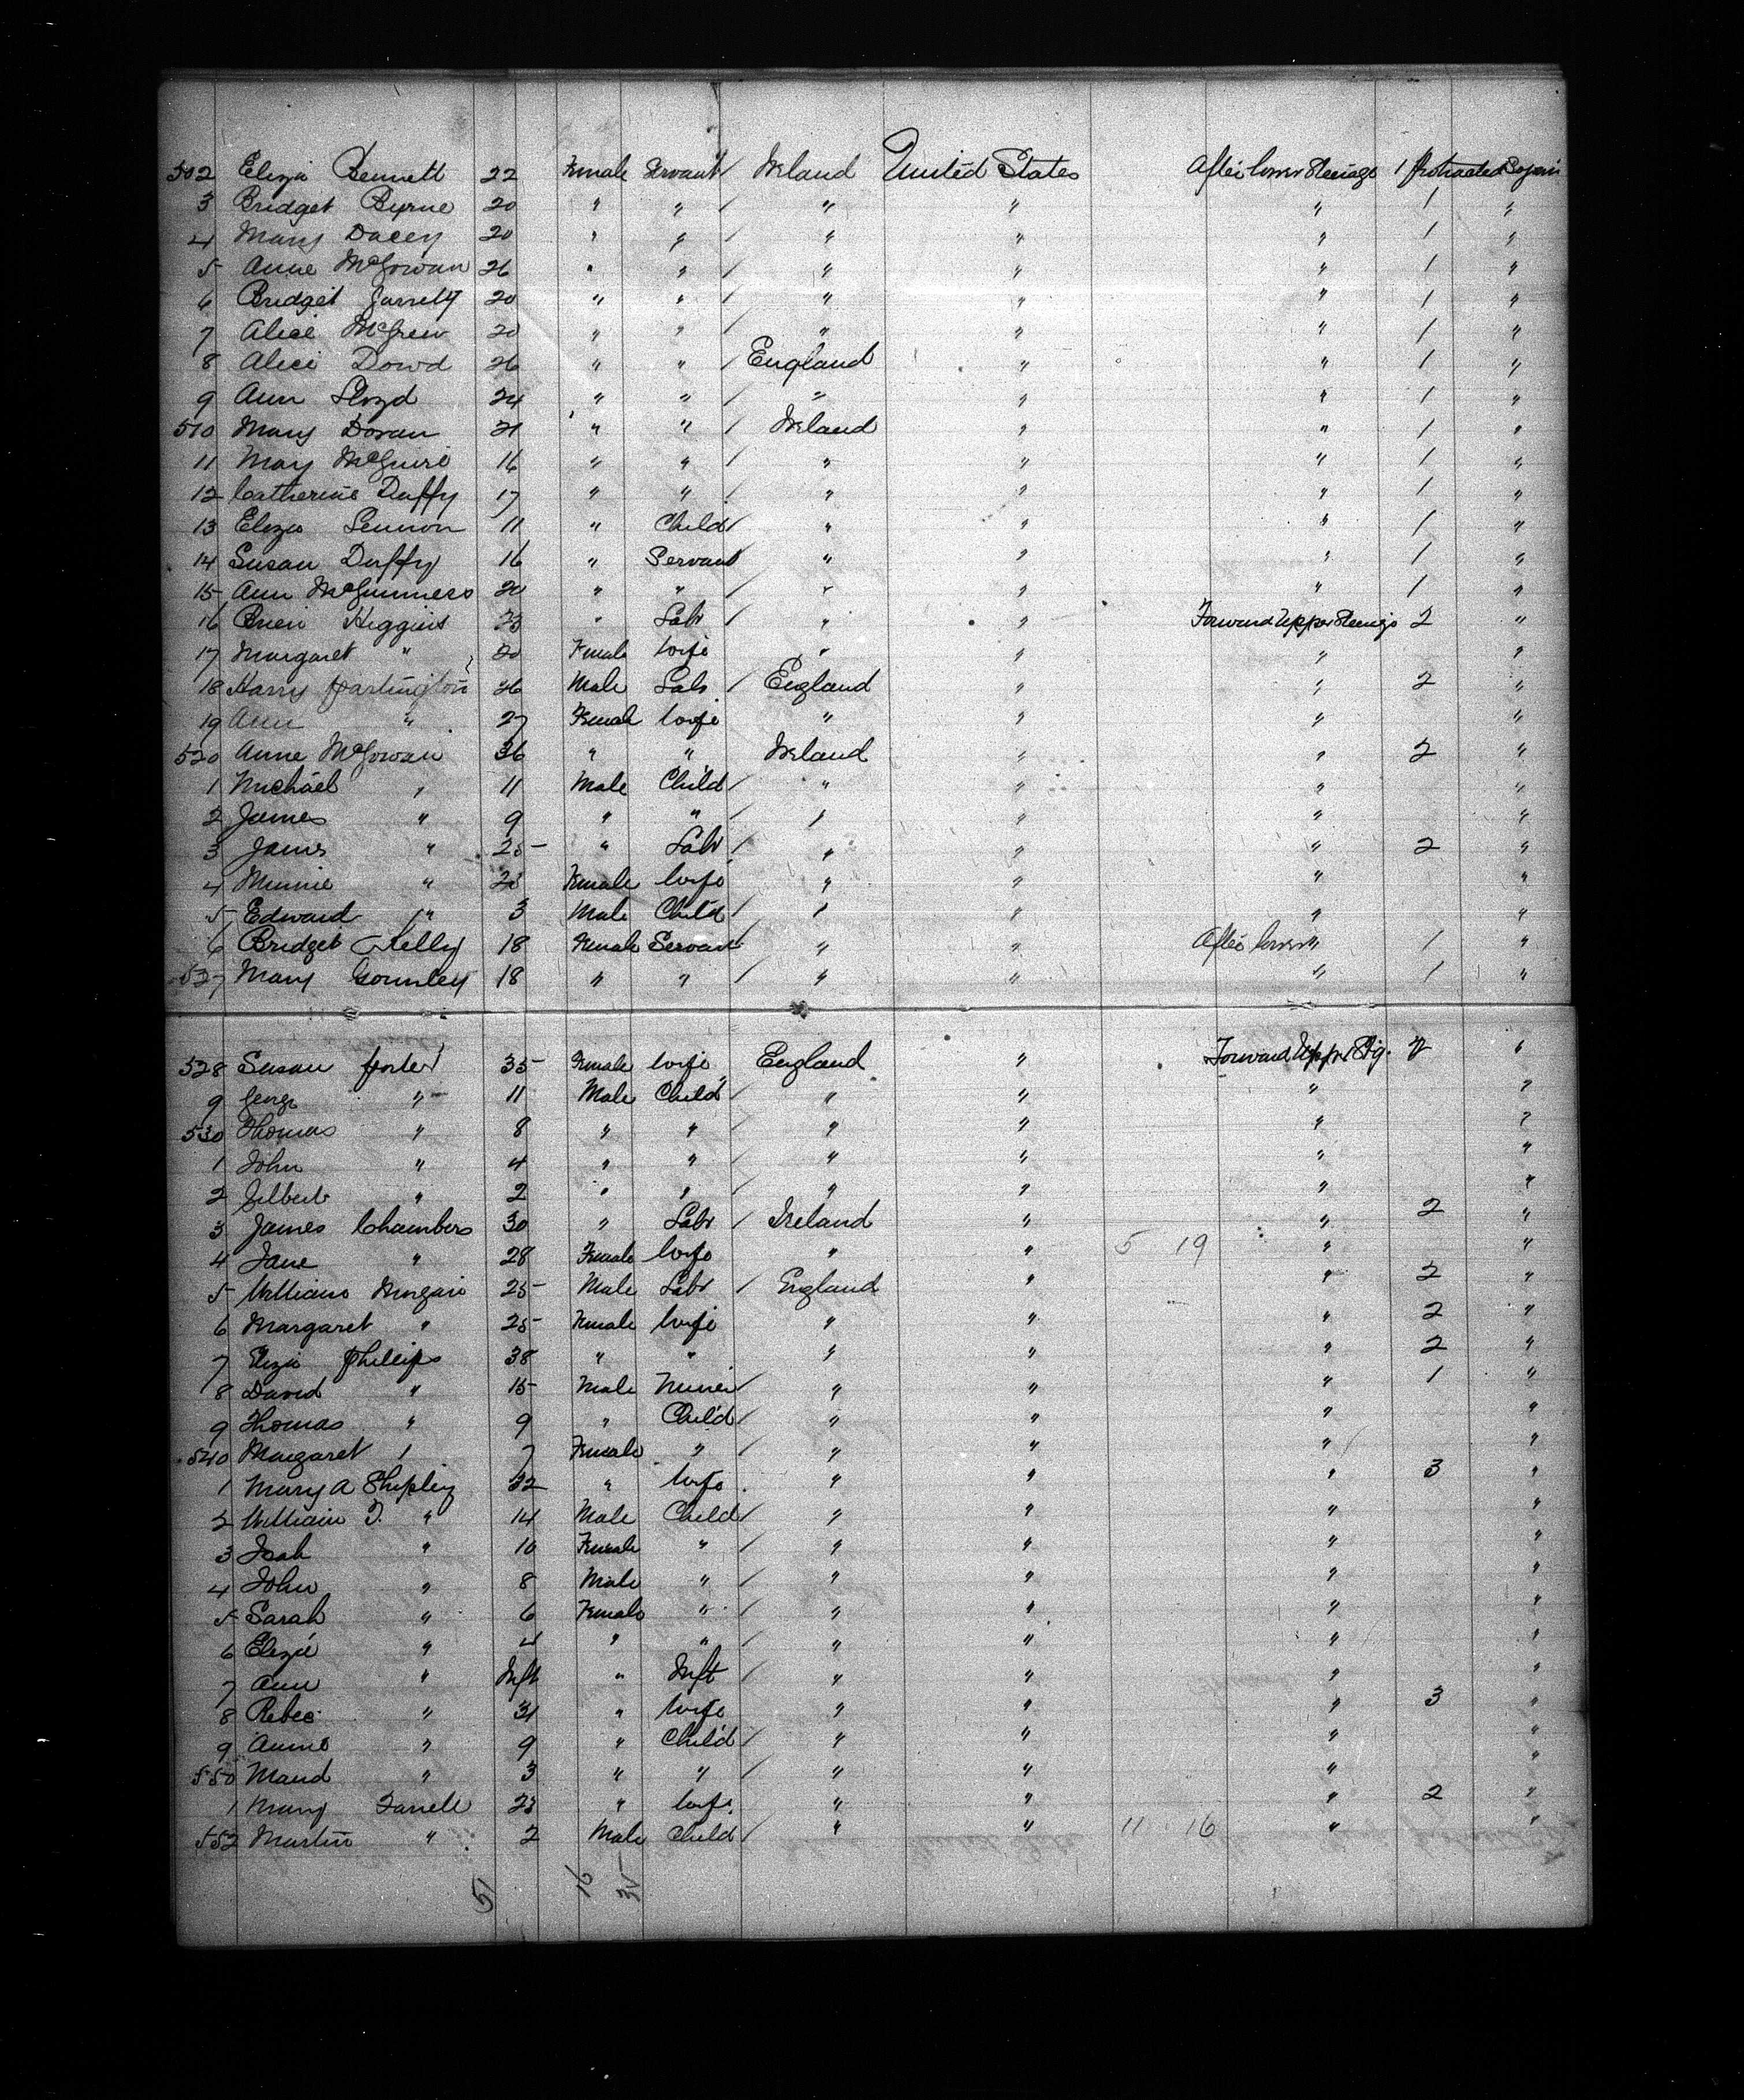 502 Eliza Bennett 22 Female Servant / Ireland United States After lower Steerage 1 Protracted Sojourn
3 Bridget Byrne 20 " " / " " " 1 "
4 Mary Dacey 20 " " / " " " 1 "
5 Anne McGowan 26 " " / " " " 1 "
6 Bridget Garrety 20 " " / " " " 1 "
7 Alice McGrew 20 " " / " " " 1 "
8 Alice Dowd 26 " " / England " " 1 "
9 Ann Lloyd 24 " " / " " " 1 "
510 Mary Doran 21 " " / Ireland " " 1 "
11 May McGuire 16 " " / " " " 1 "
12 Catherine Duffy 17 " " / " " " 1 "
13 Eliza Lennon 11 " Child / " " " 1 "
14 Susan Duffy 16 " Servant " " " 1 "
15 Ann McGuinness 20 " " / " " " 1 "
16 Higgins 23 " Labr / " " Forward Upper Steerage 2 "
17 Margaret " 20 Female Wife " " " "
18 Harry Partington 26 Male Labr / England " " 2 "
19 Ann " 27 Female Wife " " " "
520 Anne McGowan 36 " " Ireland " " 2 "
1 Michael " 11 Male Child / " " " "
2 James " 9 " " / " " " "
3 James " 25 " Labr / " " " 2 "
4 Minnie " 23 Female Wife " " " "
5 Edward " 3 Male Child / " " " "
6 Bridget Kelly 18 Female Servant " " After lower " 1 "
527 Mary Gormley 18 " " / " " " 1 "
528 Susan Porter 35 Female Wife England " Forward Upper Stg. 2 "
9 George " 11 Male Child / " " " "
530 Thomas " 8 " " / " " " "
1 John " 4 " " / " " " "
2 Gilbert " 2 " " / " " " "
3 James Chambers 30 " Labr / Ireland " " 2 "
4 Jane " 28 Female Wife " " 5 19 " "
5 William 25 Male Labr / England " " 2 "
6 Margaret " 25 Female Wife " " " 2 "
7 Eliza Phillips 38 " " " " " 2 "
8 David " 15 Male Miner / " " " 1 "
9 Thomas " 9 " Child / " " " "
540 Margaret " 7 Female " / " " " "
1 Mary A Shipley 32 " Wife " " " 3 "
2 William T. " 14 Male Child / " " " "
3 Isah " 10 Female " / " " " "
4 John " 8 Male " / " " " "
5 Sarah " 6 Female " / " " " "
6 Elizie " 4 " " / " " " "
7 Ann " Inft " Inft / " " " "
8 Rebec " 31 " Wife " " " 3 "
9 Annie " 9 " Child / " " " "
550 Maud " 3 " " / " " " "
1 Mary Farrell 23 " Wife " " " 2 "
552 Martin " 2 Male Child / " " 11 16 " "
51 16 35